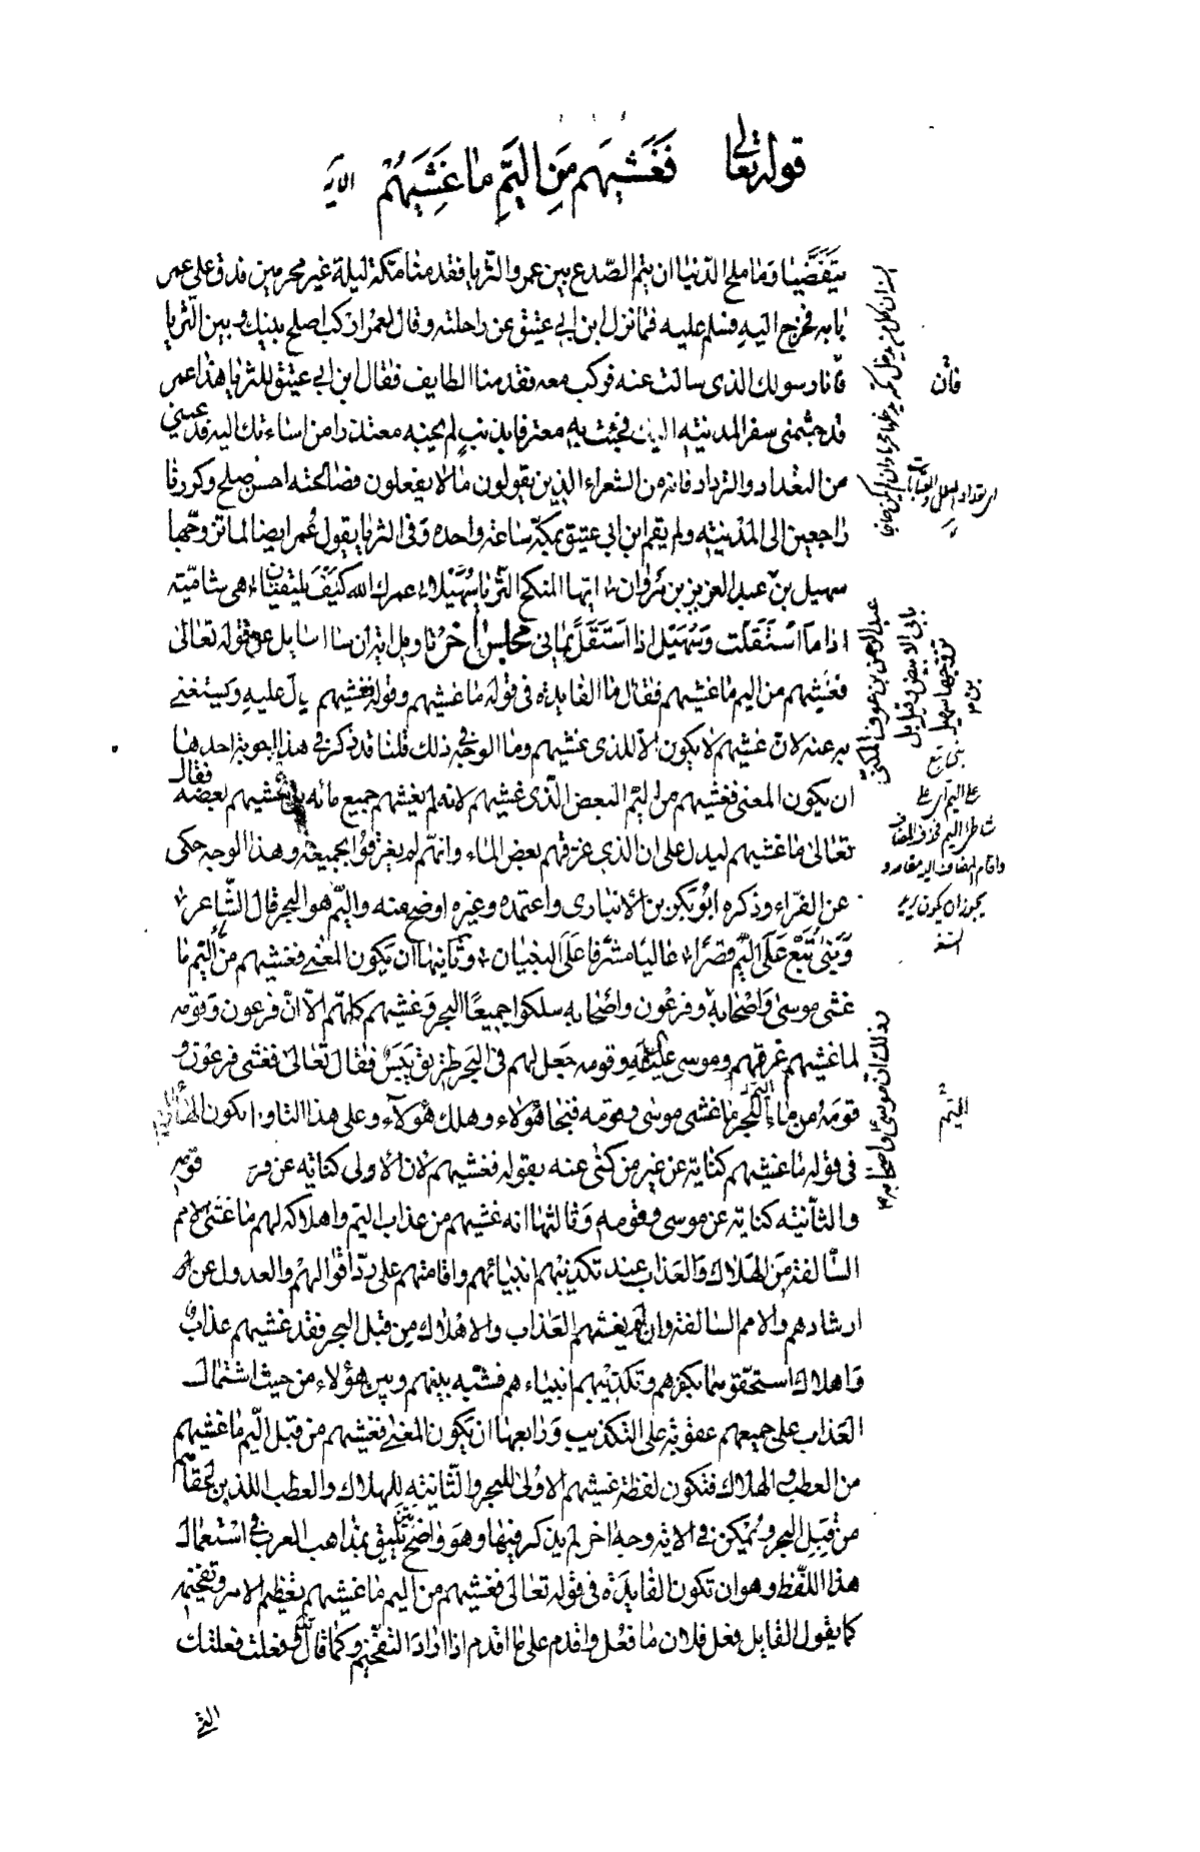 قوله تعالى فَغَشِيَهم مِنَ اليَمِّ ما غَشِيَهُمْ الاية
يتقضيا وما ملح الدنيا ان يتم الصدع بين عمر والثريا فقدمنا مكة ليلة غير محرمين فدق على عمر
بابه فخرج اليه وسلم عليه فما نزل ابن ابي عتيق عن راحلته وقال لعمر اركب اصلح بينك وبين الثريا
فانا رسولك الذي سالت عنه فركب معه فقدمنا الطايف فقال ابن ابي عتيق للثريا هذا عمر
قد جشمني سفر المدينة اليك فجئت به معترفا بذنب لم يجنه معتذرا من اساءتك اليه فدعيني
من التعداد والترداد فانه من الشعراء الذين يقولون ما لا يفعلون فصالحته احسن صلح وكررنا
راجعين الى المدينة ولم يقم ابن ابي عتيق بمكة ساعة واحدة وفي الثريا يقول عمر ايضا لما تزوجها
سهيل بن عبد العزيز بن مروان ايها المنكح الثريا سهيلا عمرك الله كيف يلتقيان هي شامية
اذا ما استقلت وسهيل اذا استقل يماني مجلس اخر تاويل اية ان سال سايل عن قوله تعالى
فغشيهم من اليم ما غشيهم فقال ما الفايدة في قوله ما غشيهم وقوله فغشيهم يدل عليه ويستغنى
به عنه لان غشيهم لا يكون الا للذي غشيهم وما الوجه في ذلك قلنا قد ذكر في هذا اجوبة احدها
ان يكون المعنى فغشيهم من اليم البعض الذي غشيهم لانه لم يغشهم جميع مائه بل غشيهم بعضه فقال
تعالى ما غشيهم ليدل على ان الذي غرقهم بعض الماء وانهم لم يغرقوا بجميعه وهذا الوجه حكي
عن الفراء وذكره ابو بكر بن الانباري واعتمده وغيره اوضح منه واليم هو البحر قال الشاعر
وبنى تبع على اليم قصرا عاليا مشرفا على البنيان وثانيها ان يكون المعنى فغشيهم من اليم ما
غشي موسى واصحابه وفرعون واصحابه سلكوا جميعا البحر وغشيهم كلهم الا ان فرعون وقومه
لما غشيهم غرقهم وموسى عليه السلام وقومه جعل لهم في البحر طريق يبس فقال تعالى فغشى فرعون و
قومه من ماء البحر ما غشي موسى وقومه فنجا هؤلاء وهلك هؤلاء وعلى هذا التاويل تكون الهاء
في قوله ما غشيهم كناية عن غير من كنى عنه بقوله فغشيهم لان الاولى كناية عن فرعون وقومه
والثانية كناية عن موسى وقومه وثالثها انه غشيهم من عذاب اليم واهلاكه لهم ما غشي الامم
السالفة من الهلاك والعذاب عند تكذيبهم انبيائهم واقامتهم على رد اقوالهم والعدول عن
ارشادهم والامم السالفة وان لم يغشهم العذاب والاهلاك من قبل البحر فقد غشيهم عذاب
واهلاك استحقوهما بكفرهم وتكذيبهم انبياءهم فشبه بينهم وبين هؤلاء من حيث اشتمال
العذاب على جميعهم عقوبة على التكذيب ورابعها ان يكون المعنى فغشيهم من قبل اليم ما غشيهم
من العطب والهلاك فتكون لفظة غشيهم الاولى للبحر والثانية للهلاك والعطب اللذين لحقاهم
من قبل البحر ويمكن في الاية وجه اخر لم يذكر فيها وهو واضح يليق بمذاهب العرب في استعمال
هذا اللفظ وهو ان تكون الفايدة في قوله تعالى فغشيهم من اليم ما غشيهم تعظيم الامر وتفخيمه
كما يقول القايل فعل فلان ما فعل واقدم على ما اقدم اذا اراد التفخيم وكما قال الله وفعلت فعلتك
التي
فان
عبد الرحمن بن عوف المكنى
بابي الابيض وقيل بل
تزوجها سهيل
على اليم اي على
شاطئ اليم فحذف المضاف
واقام المضاف اليه مقامه و
يجوز ان يكون
وذلك ان موسى واصحابه